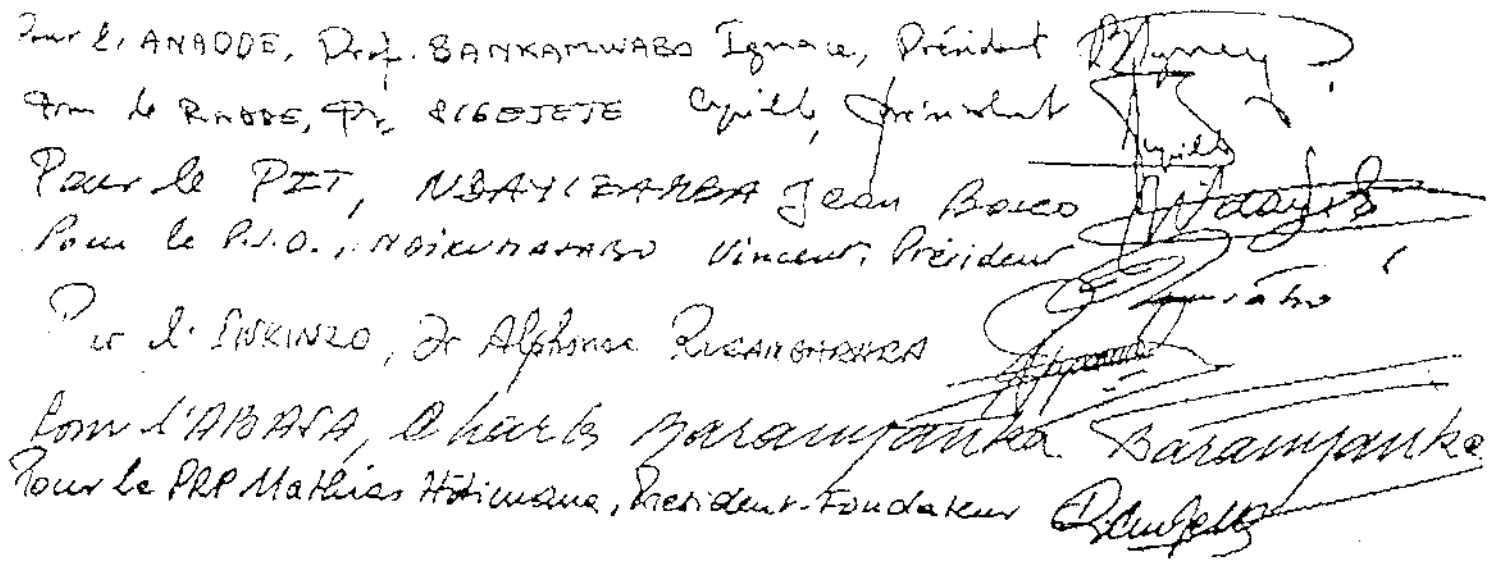 Pour l'ANADDE, Prof. BANKAMWABO Ignace, Président
Pour le RADDE, Pr. SIGEJEJE Cyrille, Président
Pour le PIT, NDAYIZAMBA Jean Bosco
Pour le P.S.D., NDIKUMASABO Vincent, Président
Pour l'INKINZO, Dr Alphonse RUGAMBARARA
Pour l'ABASA, Charles Baranyanka Baranyanka
Pour le PRP Mathias Hitimana, Président-Fondateur